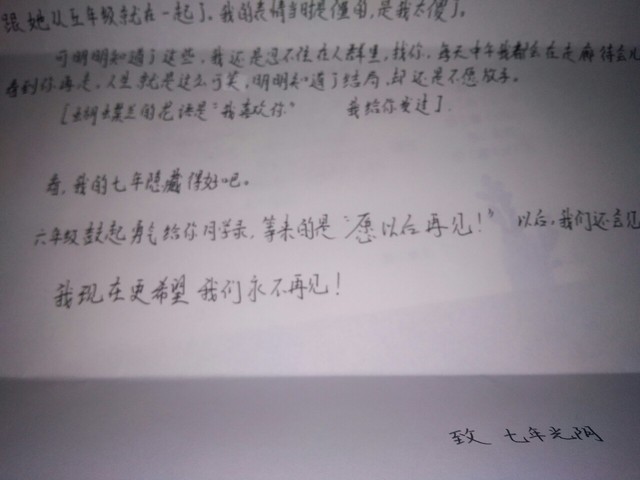 跟她从五年级就在一起了。我的表情当时是僵的,是我太傻了。
可明明知道了这些,我还是忍不住在人群里,找你,每天中午我都会在走廊待会儿
看到你再走。人生就是这么可笑,明明知道了结局,却还是不愿放手。
[蝴蝶兰的花语是“我喜欢你” 我给你发过].
看,我的七年隐藏得好吧。
六年级鼓起勇气给你同学录,等来的是“愿以后再见!” 以后,我们还会见
我现在更希望 我们永不再见!
致 七年光阴